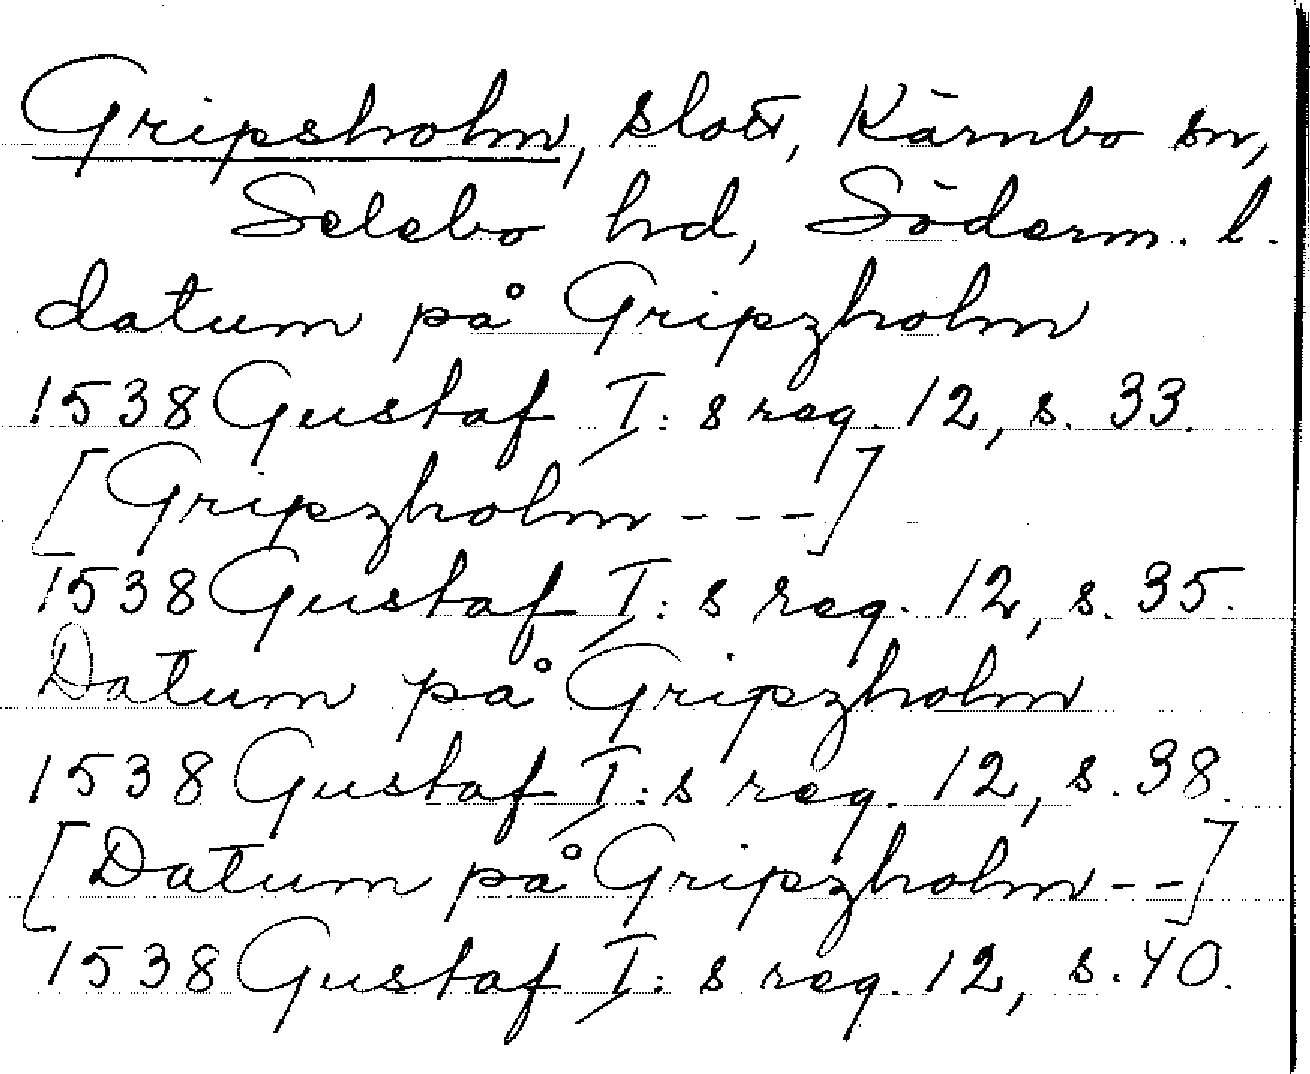 Gripsholm, slott, Kärnbo sn,
Selebo hd, Söderm. l.
datum på Gripzholm
1538 Gustaf I:s reg. 12, s. 33.
[Gripzholm - - -]
1538 Gustaf I:s reg. 12, s. 35.
Datum på Gripzholm
1538 Gustaf I:s reg. 12, s. 38.
[Datum på Gripzholm - -]
1538 Gustaf I:s reg. 12, s. 40.